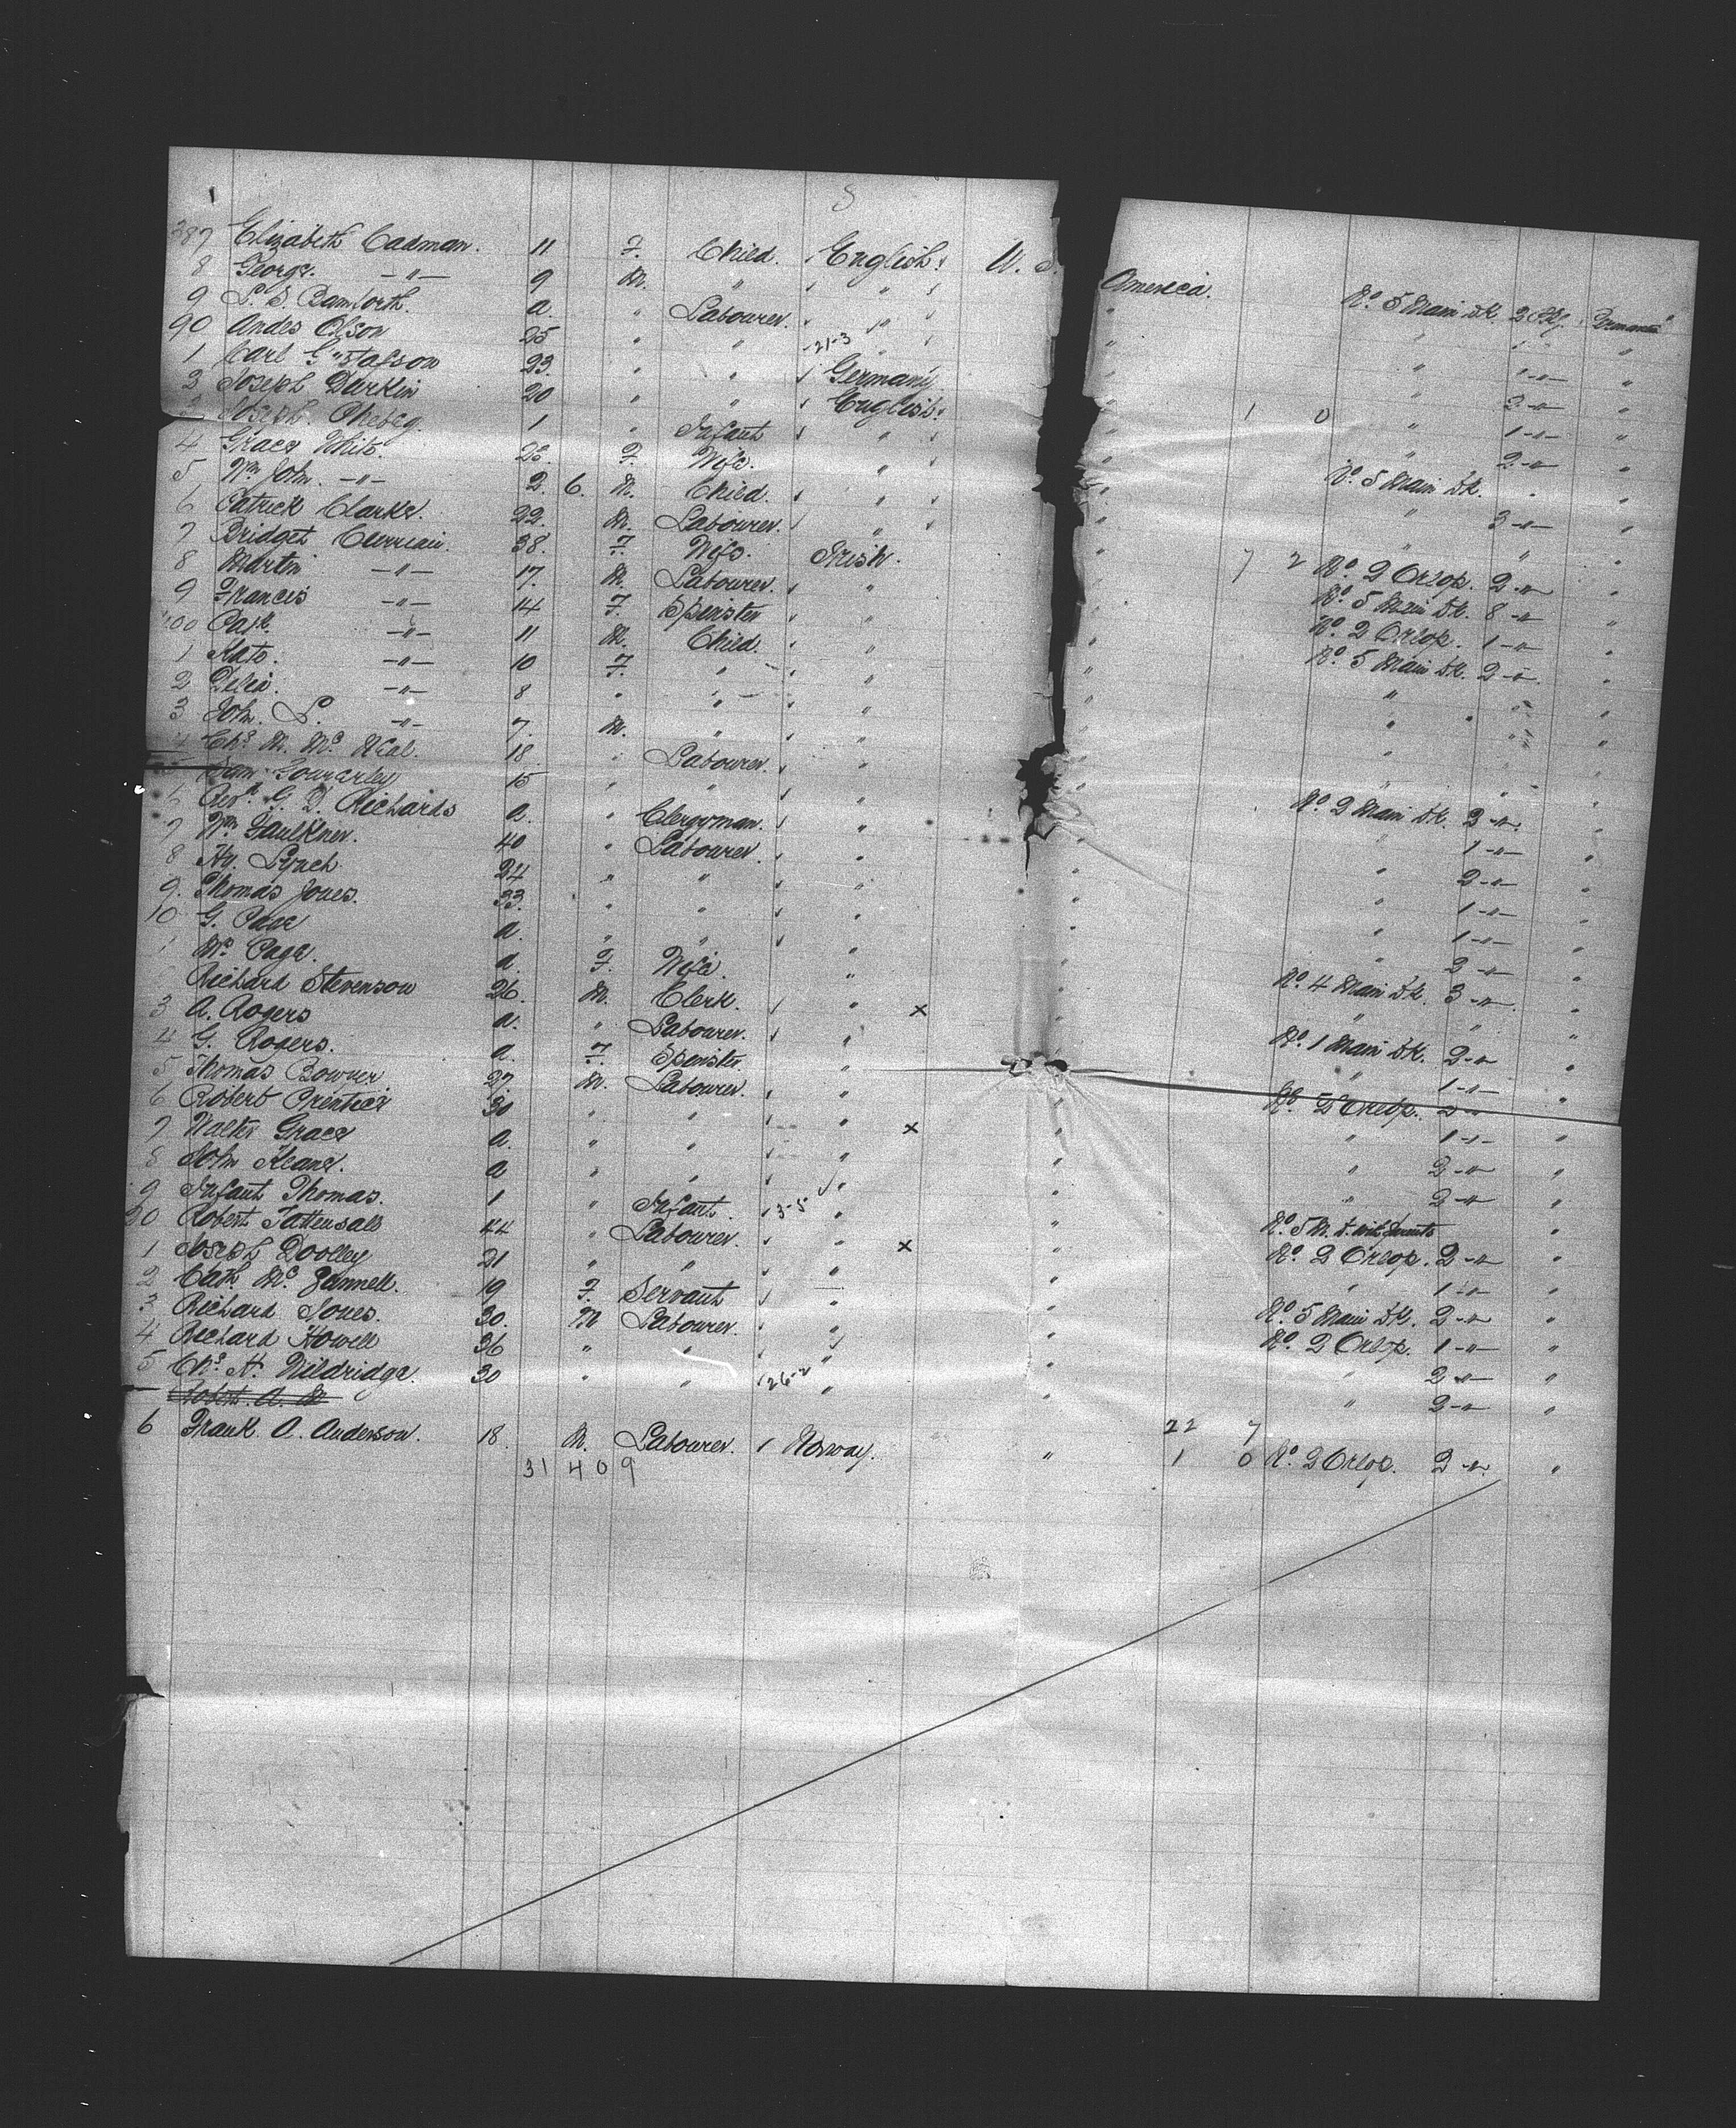 387 Elizabeth Cadman. 11 F. Child. English. U. S. America. No. 5 Main Dk. 2 Pkg.
8 George. -"- 9 M. " " " 1 -"- "
9 L. S. Bamforth. a. " Labourer. " " " 1 -"- "
90 Andes Olson 25 " " -21-3 " " 2 -"- "
1 Carl Gustafson 23. " " Germany. " 1 0 " 1 -"- "
2 Joseph Durkin 20 " " English. " " 2 -"- "
Joseph 1 " Infant " " No. 5 Main Dk. " "
4 Grace White. 28. F. Wife. " " " 3 -"- "
5 Wm. John. -"- 2. 6. M. Child. " " " " "
6 Patrick Clarke. 22. M. Labourer. " " 7 2 No. 2 Orlop. 2 -"- "
7 Bridget 38. F. Wife. Irish. " No. 5 Main Dk. 8 -"- "
8 Martin -"- 17. M. Labourer. " " No. 2 Orlop. 1 -"- "
9 Frances -"- 14. F. Spinster " " No. 5 Main Dk. 2 -"- "
400 Patk. -"- 11 M. Child. " " " " "
1 Kate. -"- 10 F. " " " " " "
2 Delia. -"- 8 " " " " " "
3 John. P. -"- 7. M. " " " " "
4 Chs. M. Mc. Neal. 18. " Labourer. " " No. 2 Main Dk. 2 -"- "
Sam 15 " " " " " 1 -"- "
6 Revd. G. D. Richards a. " Clergyman. " " " 2 -"- "
7 Wm. Faulkner. 40 " Labourer. " " " 1 -"- "
8 Hy. Lynch 24 " " " " " 1 -"- "
9. Thomas Jones. 33. " " " " " 2 -"- "
10 G. Page a. " " " " No. 4 Main Dk. 3 -"- "
1 Mrs. Page. a. F. Wife. " " " " "
Richard Stevenson 26. M. Clerk. " x " No. 1 Main Dk. 2 -"- "
3 A. Rogers a. " Labourer. " " " 1 -"- "
4 G. Rogers. a. F. Spinster " " No. 2 Orlop. 2 -"- "
5 Thomas Bowner 27. M. Labourer. " " " 1 -"- "
6 Robert Prentice 30 " " " x " " 2 -"- "
7 Walter Grace a. " " " " " 2 -"- "
8 John Keane. a " " " " No. 5 M. D. with Parents "
9 Infant Thomas. 1 " Infant. 3-5 " " No. 2 Orlop. 2 -"- "
20 Robert Tattersall 44 " Labourer. " x " " 1 -"- "
1 Joseph Doolley 21 " " " " No. 5 Main Dk. 2 -"- "
2 Cath. Mc. 19 F. Servant — " No. 2 Orlop. 1 -"- "
3 Richard Jones. 30. M Labourer. " " " 2 -"- "
4 Richard Howell 36 " " " " " 2 -"- "
5 Chs. H. Wildridge. 30 " " 26-2 " "
Robert. A. M
22 7
6 Frank. A. Anderson. 18. M. Labourer. Norway. " 1 0 No. 2 Orlop. 2 -"- "
31 4 0 9